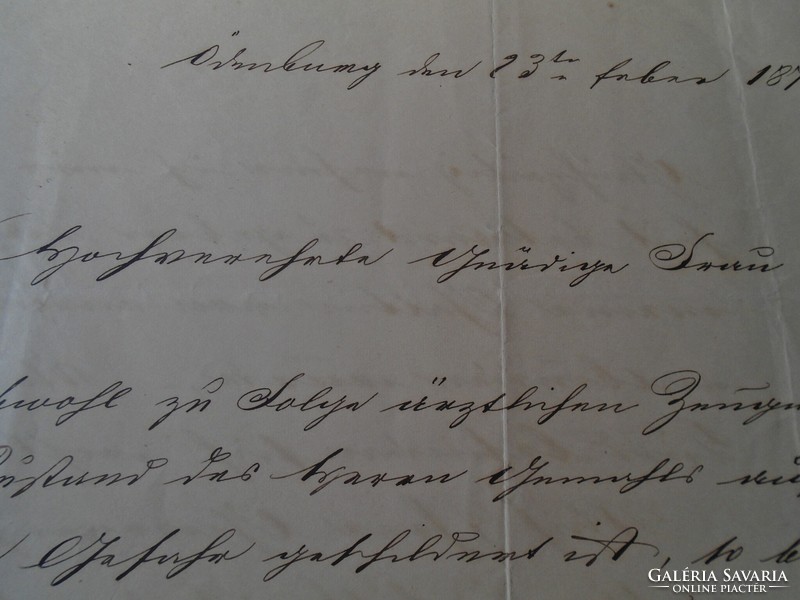 Ödenburg den 23te feber 187
Hochverehrte Gnädige Frau
wohl zu Folge ärztlichen Zeugn
Zustand des Herrn Gemahls auß
Gefahr geschildert ist, so b
GALÉRIA SAVARIA
ONLINE PIACTÉR